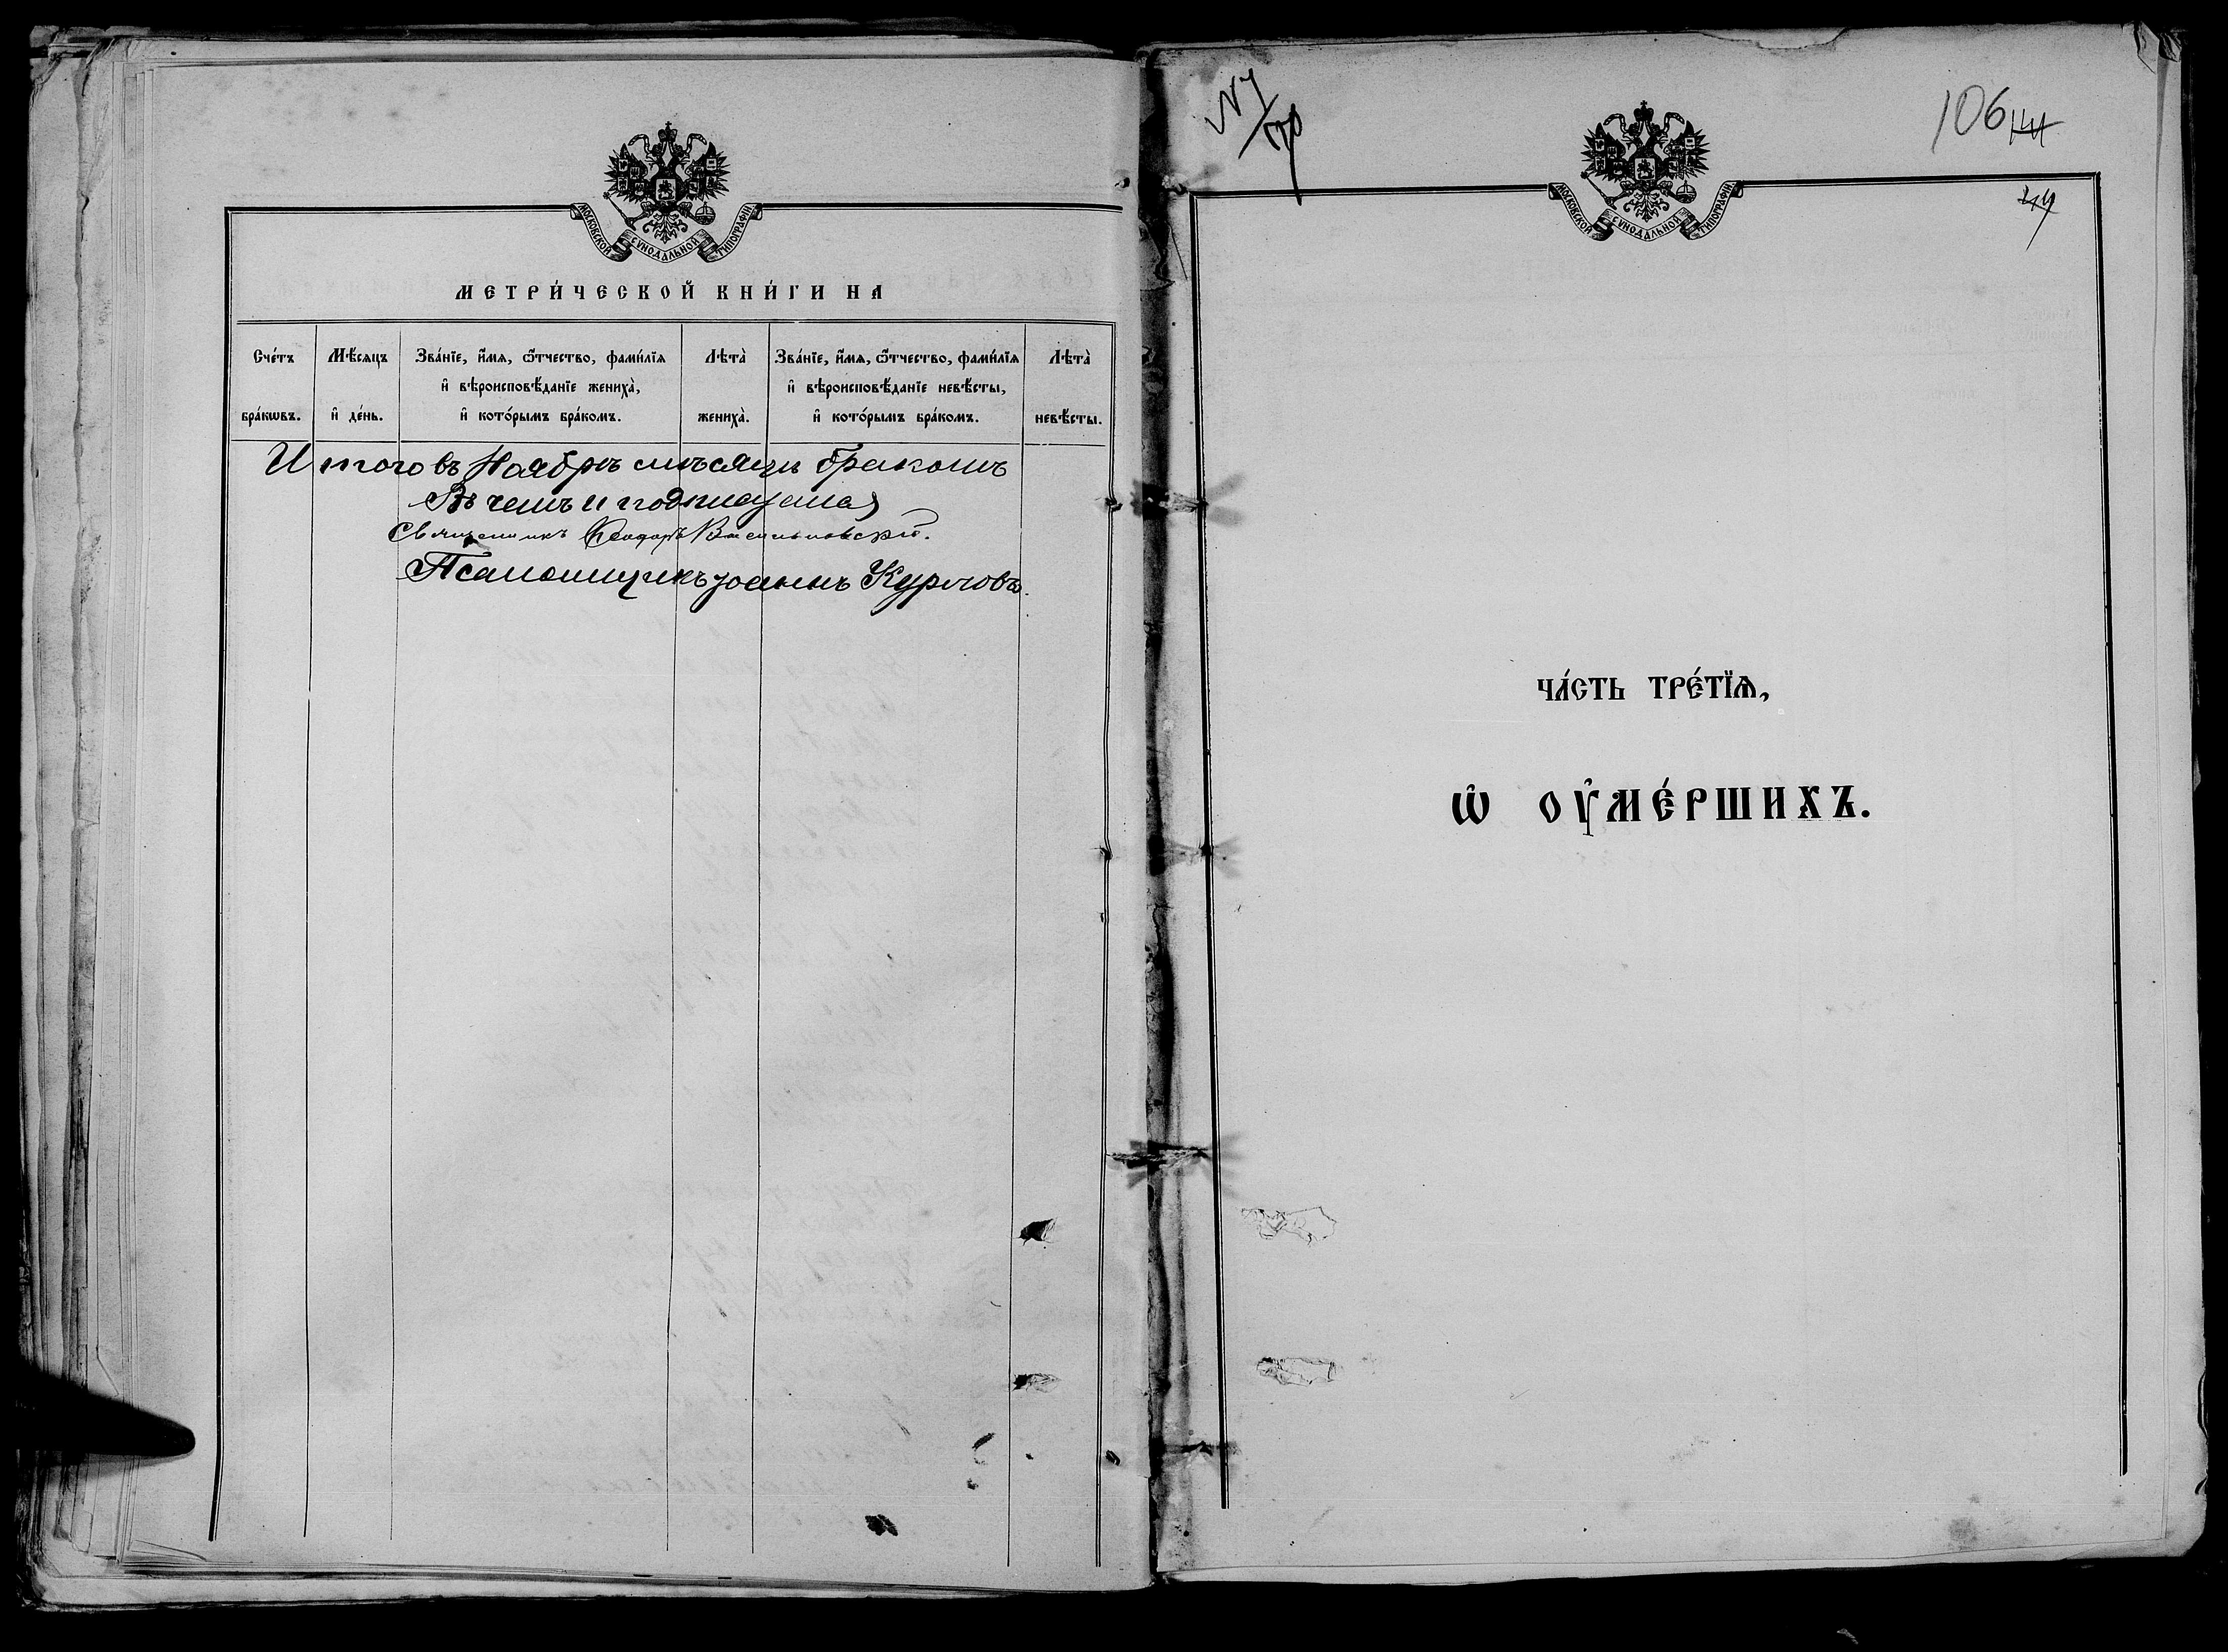 МОСКОВСКОЙ СѴНОДАЛЬНОЙ ТИПОГРАФІИ
МЕТРИ́ЧЕСКОЙ КНИ́ГИ НА
Сче́тъ бра́кѡвъ.
Мѣ́сяцъ и҆ де́нь.
Зва́нїе, и҆́мѧ, ѻ҆́тчество, фами́лїѧ и҆ вѣроисповѣ́данїе жениха̀, и҆ кото́рымъ бра́комъ.
Лѣта̀ жениха̀.
Зва́нїе, и҆́мѧ, ѻ҆́тчество, фами́лїѧ и҆ вѣроисповѣ́данїе невѣ́сты, и҆ кото́рымъ бра́комъ.
Лѣта̀ невѣ́сты.
Итого въ Ноябрѣ мѣсяцѣ бракомъ
Въ чемъ и подписуемся
Священникъ Ѳеодоръ Васильковскій.
Псаломщикъ Іоаннъ Курловъ.
106
МОСКОВСКОЙ СѴНОДАЛЬНОЙ ТИПОГРАФІИ
ЧА́СТЬ ТРЕ́ТЇѦ,
Ѡ҆ ОУ҆МЕ́РШИХЪ.